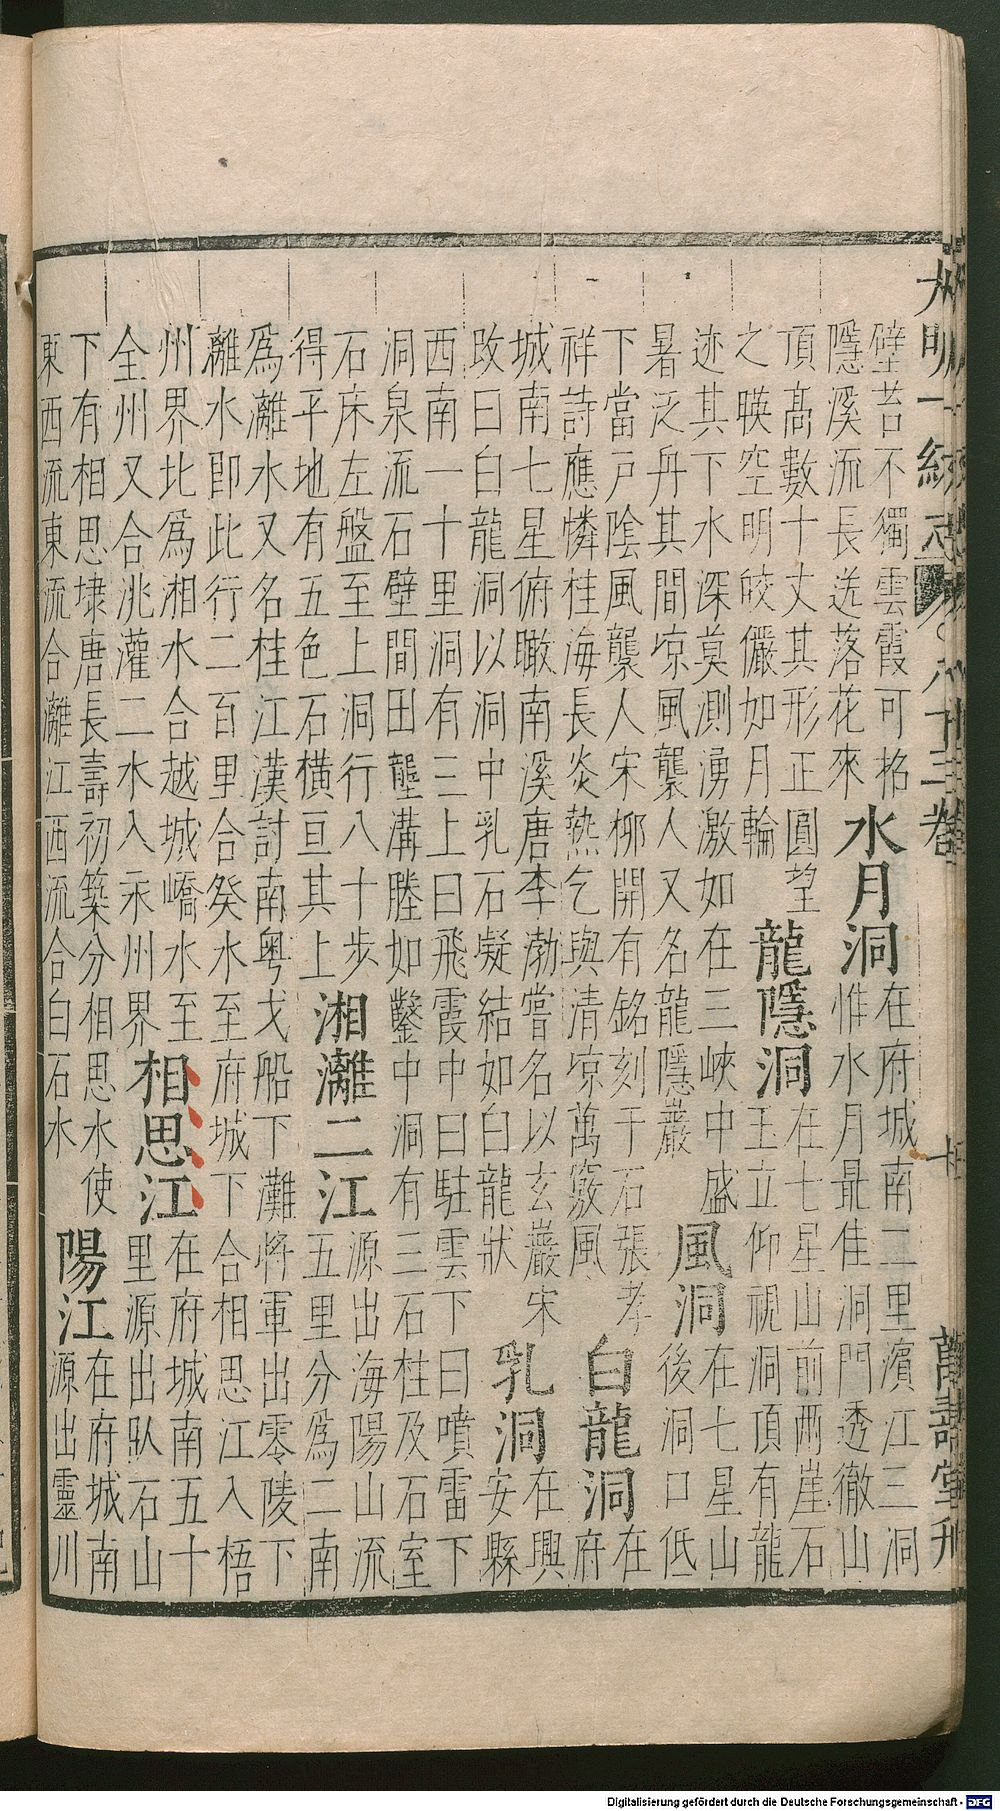 大明一統志 八十三卷 萬壽堂刊
壁苔不獨雲霞可
隱溪流長送落花來
水月洞
在府城南二里濱江三洞
惟水月最佳洞門透徹山
頂高數十丈其形正圓望
之暎空明皎儼如月輪
龍隱洞
在七星山前兩崖石
玉立仰視洞頂有龍
迹其下水深莫測湧激如在三峽中盛
暑泛丹其間凉風襲人又名龍隱巖
風洞
在七星山
後洞口低
下當戸陰風襲人宋栁開有銘刻于石張孝
祥詩應憐桂海長炎熱乞與清凉萬竅風
白龍洞
在
府
城南七星俯瞰南溪唐李渤嘗名以玄巖宋
攺曰白龍洞以洞中乳石凝結如白龍狀
乳洞
在興
安縣
西南一十里洞有三上曰飛霞中曰駐雲下曰噴雷下
洞泉流石壁間田壟溝塍如鑿中洞有三石柱及石室
石床左盤至上洞行八十步
得平地有五色石橫亘其上
湘灕二江
源出海陽山流
五里分爲二南
爲灕水又名桂江漢討南粤戈船下灘將軍出零陵下
灕水卽此行二百里合癸水至府城下合相思江入梧
州界北爲湘水合越城嶠水至
全州又合洮灌二水入永州界
相思江
在府城南五十
里源出臥石山
下有相思埭唐長壽初築分相思水使
東西流東流合灕江西流合白石水
陽江
在府城南
源出靈川
Digitalisierung gefördert durch die Deutsche Forschungsgemeinschaft - DFG